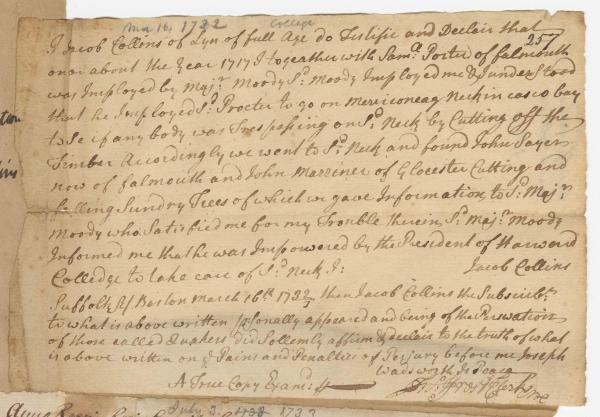 Mar 16, 1732
College
257
I Jacob Collins of Lyn of full Age do Testifie and Declair that
on or about the Year 1717 I togeather with Samll Porter of falmouth
was Imployed by Majr Moody Sd Moody Imployed me & I understood
that he Imployed Sd Procter to go on Merriconeag Neck in casco bay
to Se if any body was Trespassing on Sd Neck by Cutting off the
Timber Accordingly we went to Sd Neck and found John Sayer
now of falmouth and John Marriner of Glocester Cutting and
falling Sundry Trees of which we gave Information to Sd Majr
Moody who Satisfied me for my Trouble therein, Sd Majr Moody
Informed me that he was Impowered by the President of Harward
Colledge to take care of Sd Neck
Jacob Collins
Suffolk Boston March 16th 1732 then Jacob Collins the Subscriber
to what is above written personally appeared and being of the Perswation
of those called Quakers did Sollemly affirm & declair to the truth of what
is above written on Pains and Penalties of Perjury before me Joseph
Wadsworth Js Peace
A True Copy Examd
July 3 1733